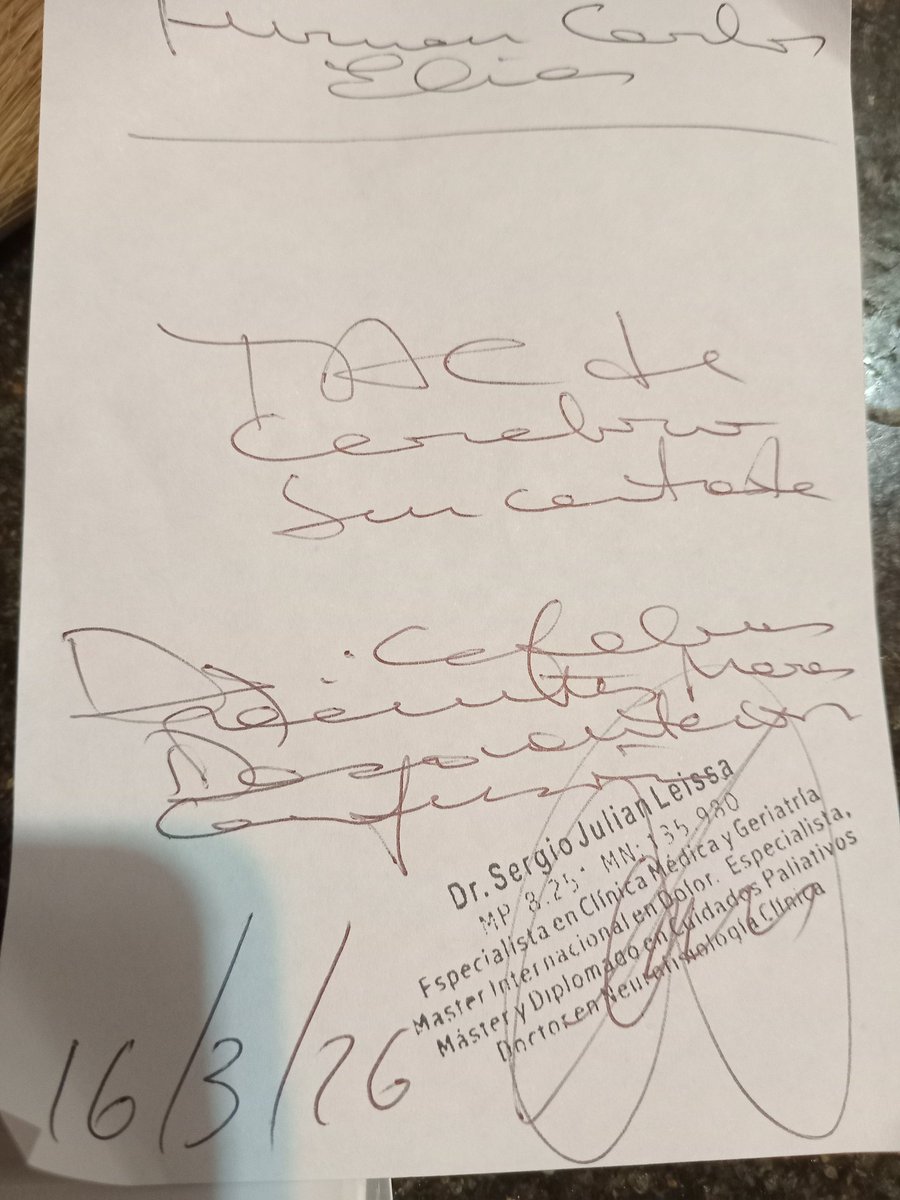 Carlos
Elias
TAC de
Cerebro
Sin contraste
D: Cefaleas
Desorientacion
Confusion
Dr. Sergio Julian Leissa
MP. 8.25 MN: 135.980
Especialista en Clínica Médica y Geriatría
Master Internacional en Dolor. Especialista,
Máster y Diplomado en Cuidados Paliativos
Doctor en Neurofisiología Clínica
16/3/26